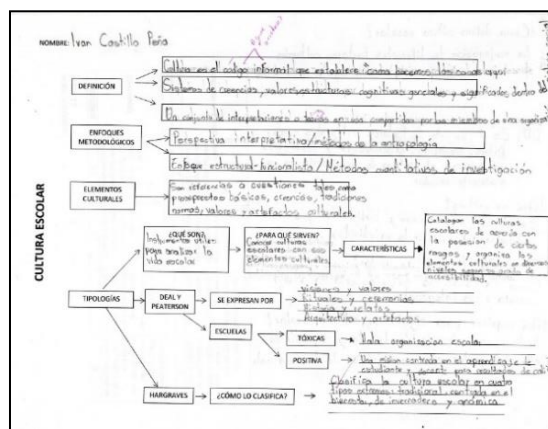 NOMBRE: Ivan Castillo Peña
Cultura es el código informal que establece "como hacemos las cosas aquí"
DEFINICIÓN
Sistemas de creencias, valores, estructuras cognitivas generales y significados dentro del
Un conjunto de interpretaciones o aprobadas compartidas por los miembros de una organización
ENFOQUES METODOLÓGICOS
Perspectiva interpretativa/métodos de la antropología
Enfoque estructural-funcionalista / Métodos cuantitativos de investigación
CULTURA ESCOLAR
ELEMENTOS CULTURALES
Son referencias a cuestiones tales como
presupuestos básicos, creencias, tradiciones
normas, valores y artefactos culturales.
TIPOLOGÍAS
¿QUÉ SON?
Instrumentos útiles
para analizar la
vida escolar
¿PARA QUÉ SIRVEN?
Conocer culturas
escolares con sus
elementos culturales.
CARACTERÍSTICAS
Catalogan las culturas
escolares de acuerdo con
la posición de ciertos
rasgos y organiza los
elementos culturales en diversos
niveles según su grado de
accesibilidad.
DEAL Y PEATERSON
SE EXPRESAN POR
visiones y valores
Rituales y ceremonias
Historia y relatos
Arquitectura y artefactos
ESCUELAS
TÓXICAS
Mala organización escolar
POSITIVA
Una misión centrada en el aprendizaje de
estudiante y docente para resultados de cali
HARGRAVES
¿CÓMO LO CLASIFICA?
Clasifica la cultura escolar en cuatro
tipos extremos: tradicional, centrada en el
bienestar, de invernadero y anómica